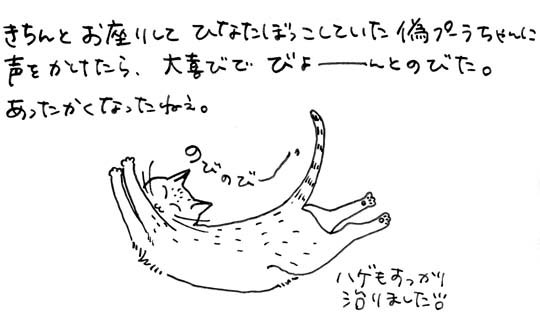 きちんと お座りして ひなたぼっこしていた 偽プーラちゃんに
声をかけたら、大喜びで びよーーんとのびた。
あったかくなったねぇ。
のびのびー
ハゲもすっかり
治りました!!